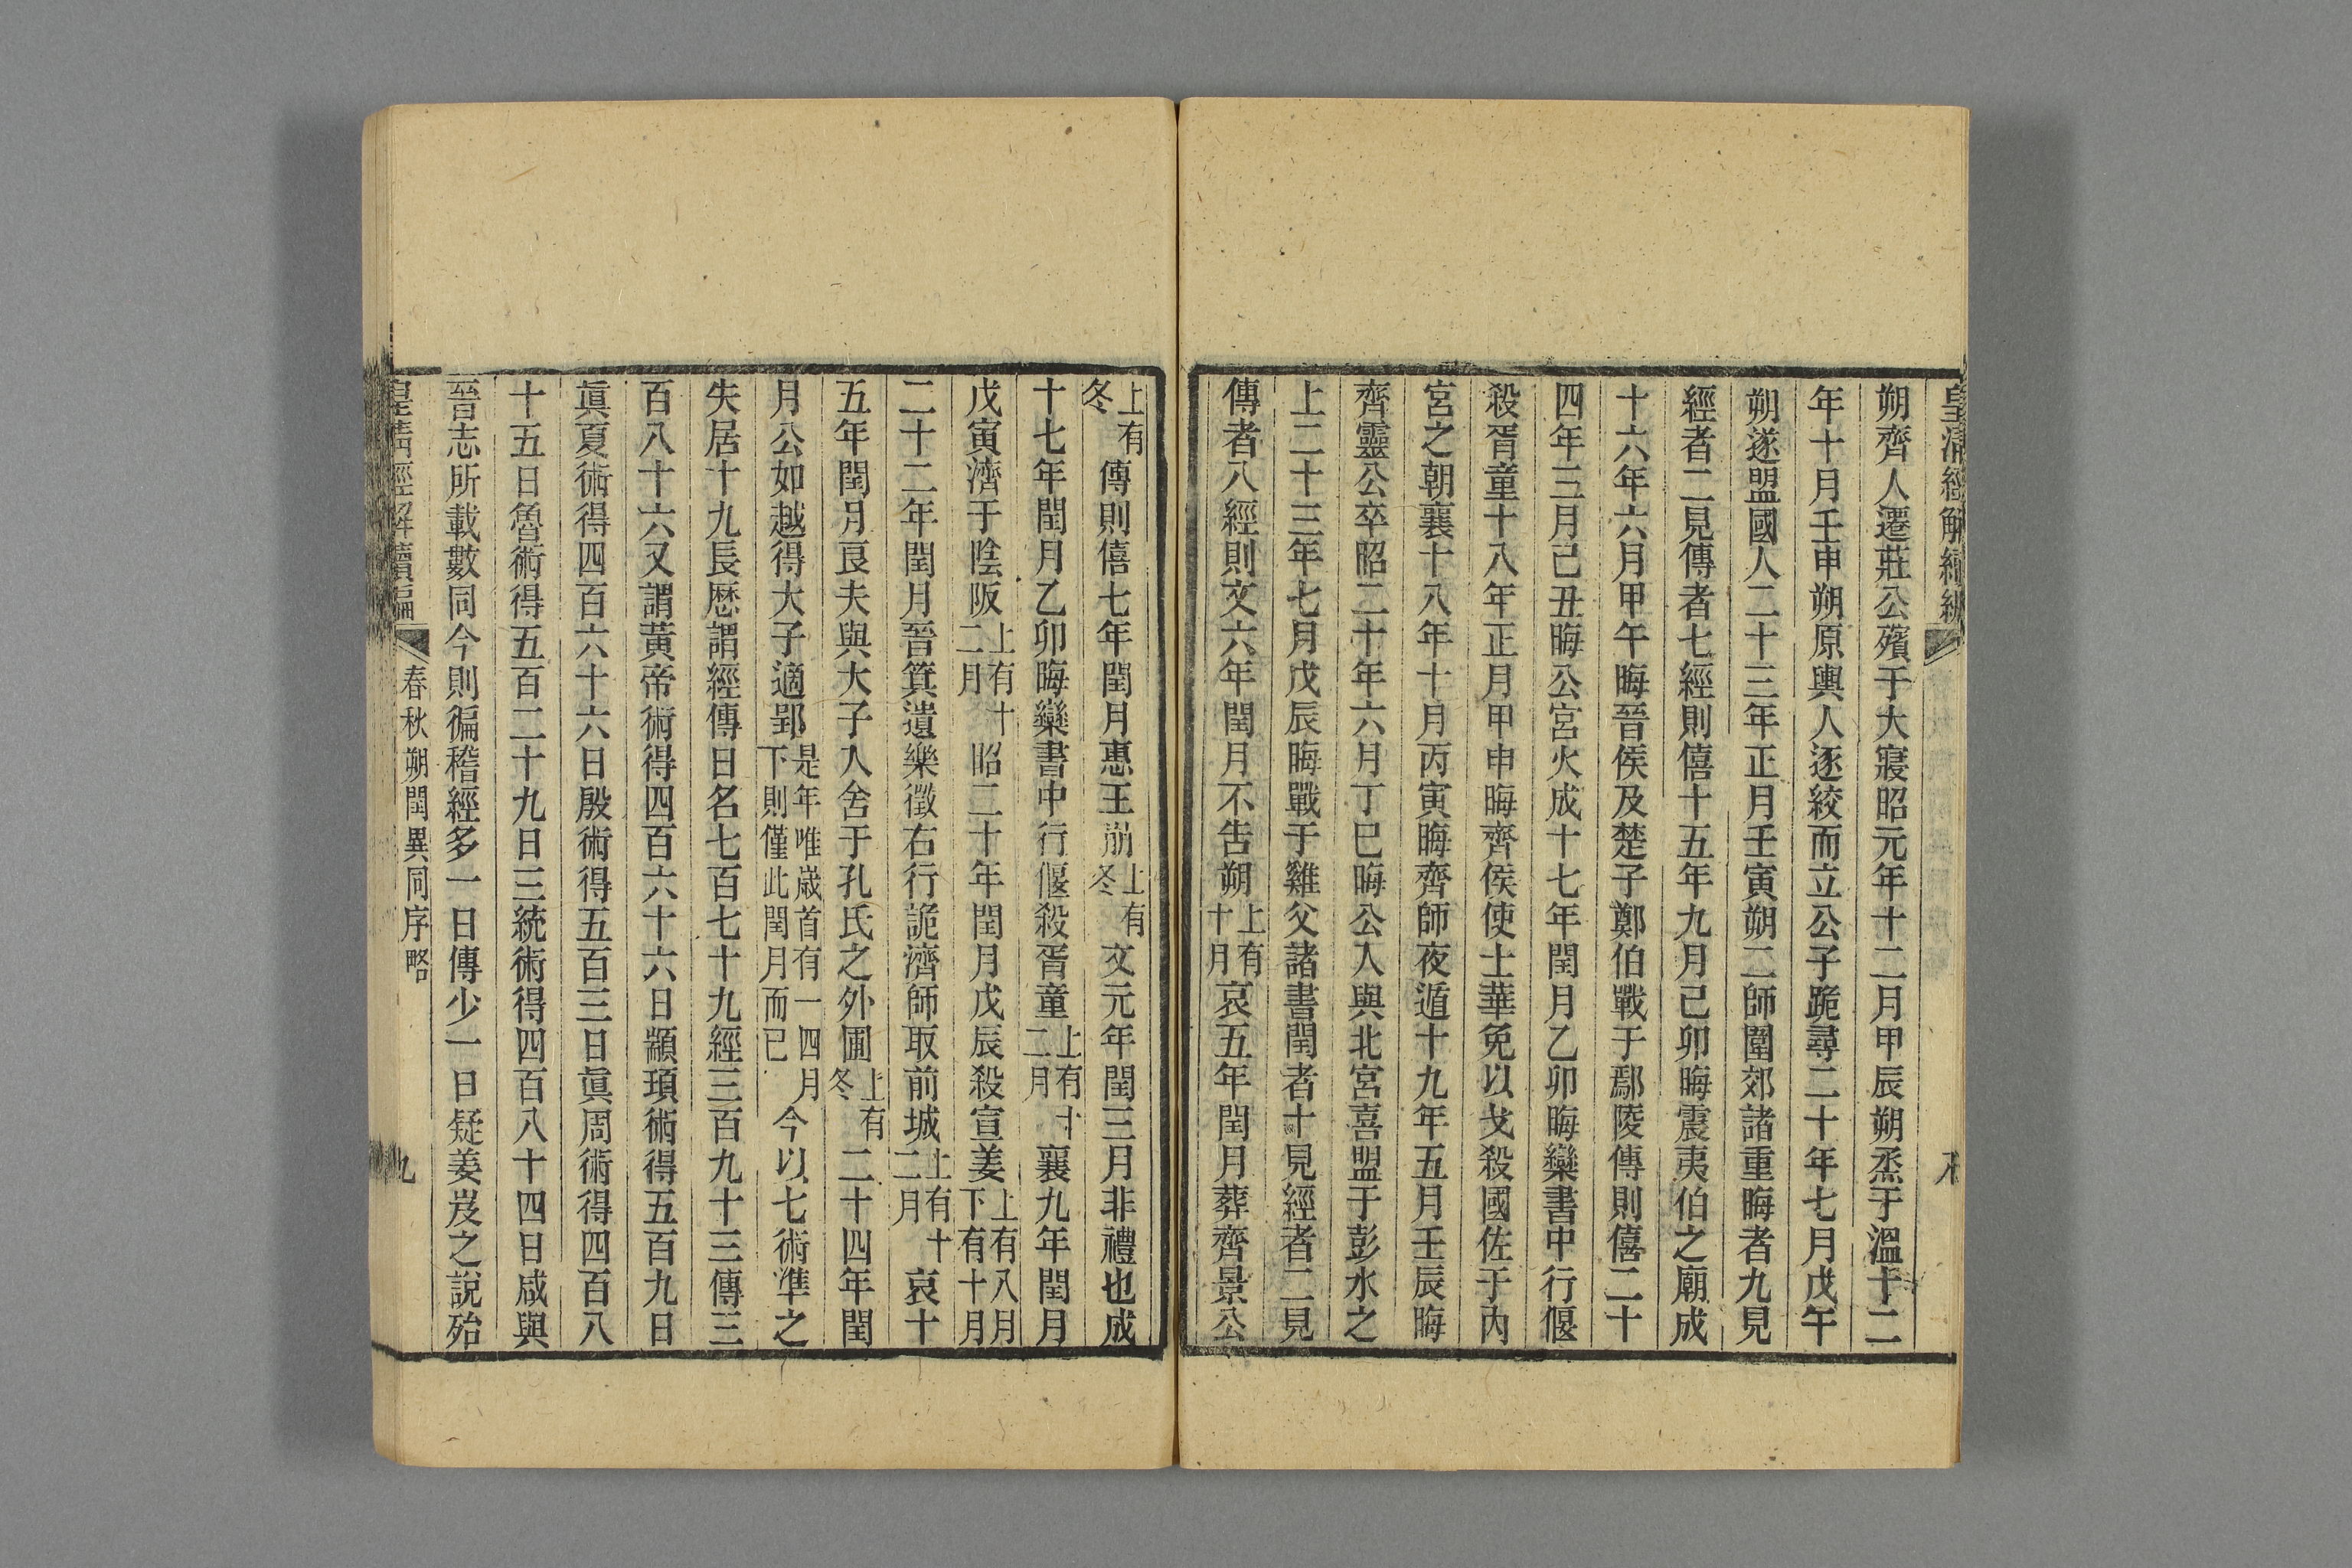 皇清經解續編
朔齊人遷莊公殯于大寢昭元年十二月甲辰朔烝于溫十二
年十月壬申朔原輿人逐絞而立公子跪尋二十年七月戊午
朔遂盟國人二十三年正月壬寅朔二師圍郊諸重晦者九見
經者二見傳者七經則僖十五年九月己卯晦震夷伯之廟成
十六年六月甲午晦晉侯及楚子鄭伯戰于鄢陵傳則僖二十
四年三月己丑晦公宮火成十七年閏月乙卯晦欒書中行偃
殺胥童十八年正月甲申晦齊侯使士華免以戈殺國佐于內
宮之朝襄十八年十月丙寅晦齊師夜遁十九年五月壬辰晦
齊靈公卒昭二十年六月丁巳晦公入與北宮喜盟于彭水之
上二十三年七月戊辰晦戰于雞父諸書閏者十見經者二見
傳者八經則文六年閏月不告朔上有十月哀五年閏月葬齊景公
上有冬傳則僖七年閏月惠王崩上有冬文元年閏三月非禮也成
十七年閏月乙卯晦欒書中行偃殺胥童上有十二月襄九年閏月
戊寅濟于陰阪上有十二月昭二十年閏月戊辰殺宣姜上有八月下有十月
二十二年閏月晉箕遺樂徵右行詭濟師取前城上有十二月哀十
五年閏月良夫與大子入舍于孔氏之外圃上有冬二十四年閏
月公如越得大子適郢是年唯歲首有一四月下則僅此閏月而已今以七術準之
失居十九長厯謂經傳日名七百七十九經三百九十三傳三
百八十六又謂黃帝術得四百六十六日顓頊術得五百九日
眞夏術得四百六十六日殷術得五百三日眞周術得四百八
十五日魯術得五百二十九日三統術得四百八十四日咸與
晉志所載數同今則徧稽經多一日傳少一日疑姜岌之說殆
皇清經解續編
春秋朔閏異同序略
九